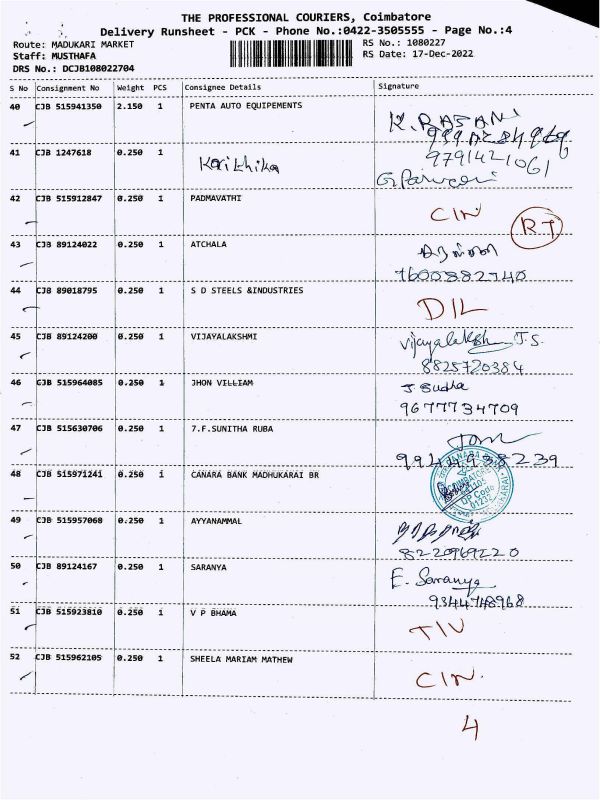 THE PROFESSIONAL COURIERS, Coimbatore
Delivery Runsheet - PCK - Phone No.:0422-3505555 - Page No.:4
Route: MADUKARI MARKET RS No.: 1080227
Staff: MUSTHAFA RS Date: 17-Dec-2022
DRS No.: DCJB108022704
S No Consignment No Weight PCS Consignee Details Signature
40 CJB 515941350 2.150 1 PENTA AUTO EQUIPEMENTS
K. RAJANI
41 CJB 1247618 0.250 1 Karithika 9791421061
42 CJB 515912847 0.250 1 PADMAVATHI CIN RT
43 CJB 89124022 0.250 1 ATCHALA
7600882740
44 CJB 89018795 0.250 1 S D STEELS &INDUSTRIES DIL
45 CJB 89124200 0.250 1 VIJAYALAKSHMI Vijayalakshmi T.S.
8825720384
46 CJB 515964085 0.250 1 JHON VILLIAM J. Sudha
9677734709
47 CJB 515630706 0.250 1 7.F.SUNITHA RUBA
48 CJB 515971241 0.250 1 CANARA BANK MADHUKARAI BR
DP Code
49 CJB 515957068 0.250 1 AYYANAMMAL
8220969220
50 CJB 89124167 0.250 1 SARANYA E. Saranya
9344748968
51 CJB 515923810 0.250 1 V P BHAMA TIV
52 CJB 515962105 0.250 1 SHEELA MARIAM MATHEW CIN.
4